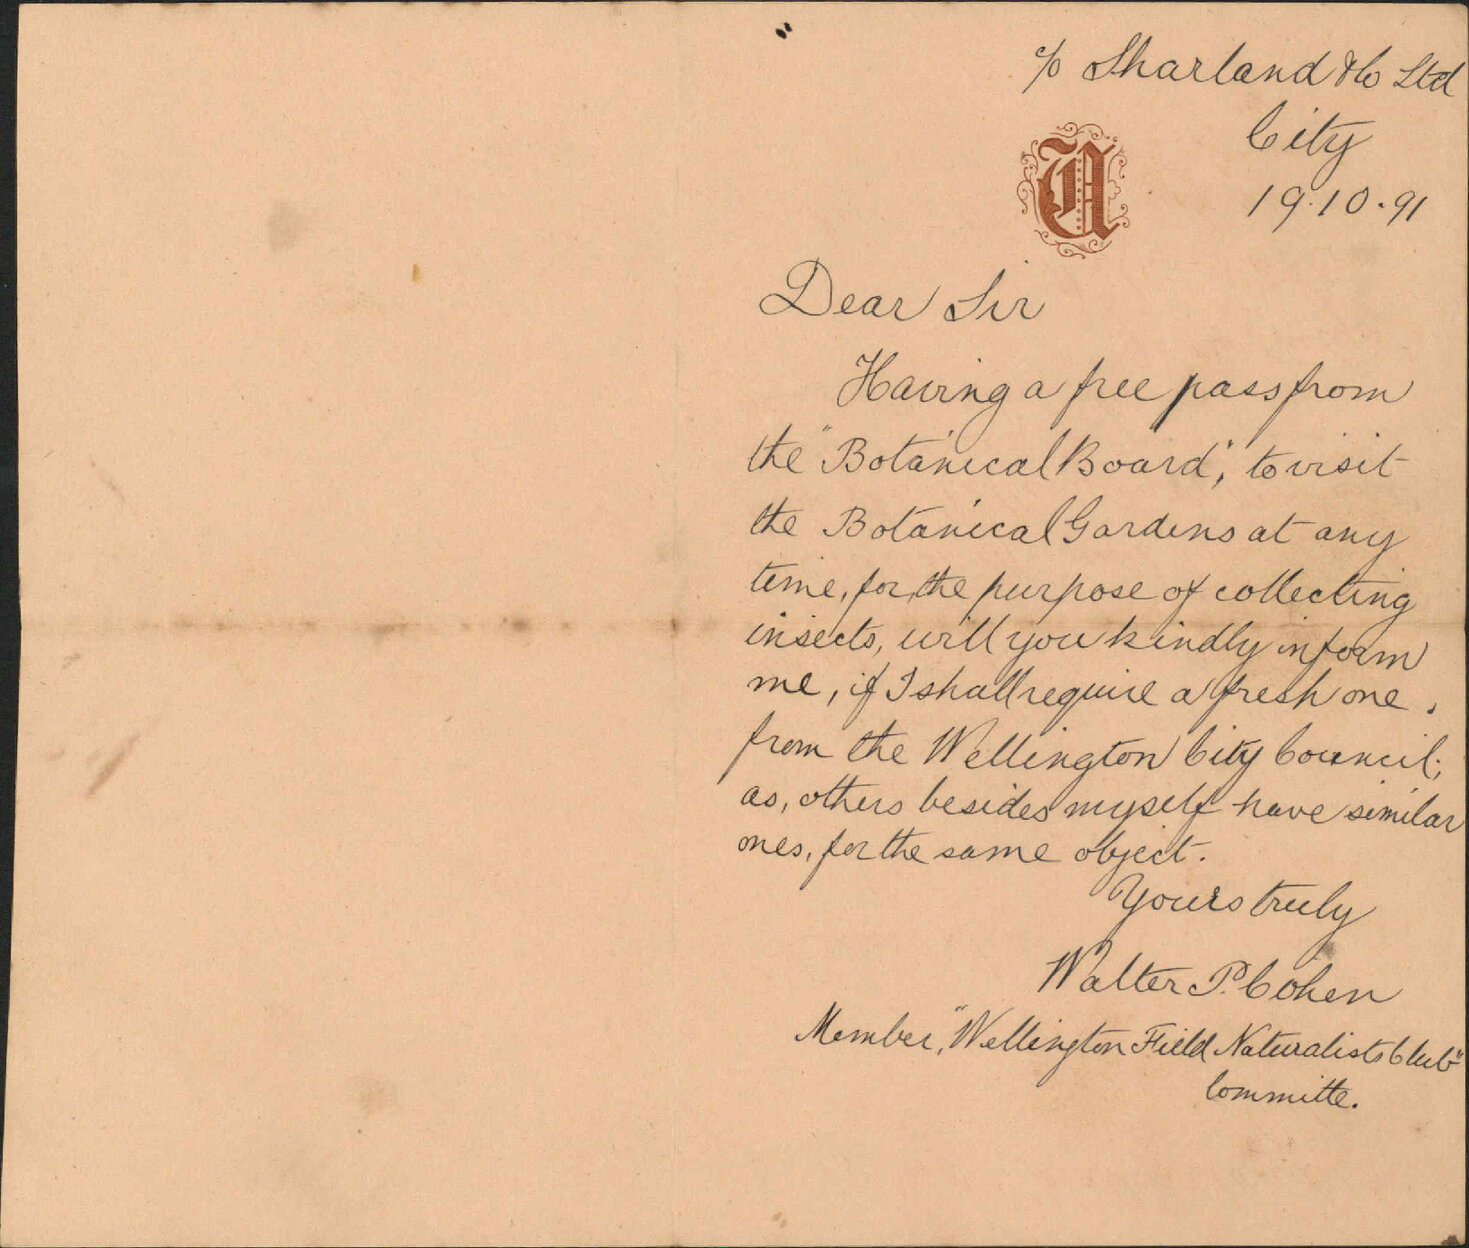 c/o Sharland & Co Ltd
City
19.10.91
A
Dear Sir
Having a free pass from
the "Botanical Board", to visit
the Botanical Gardens at any
time, for the purpose of collecting
insects, will you kindly inform
me, if I shall require a fresh one.
from the Wellington City Council;
as, others besides myself have similar
ones, for the same object.
Yours truly
Walter P. Cohen
Member, "Wellington Field Naturalists Club"
Committe.